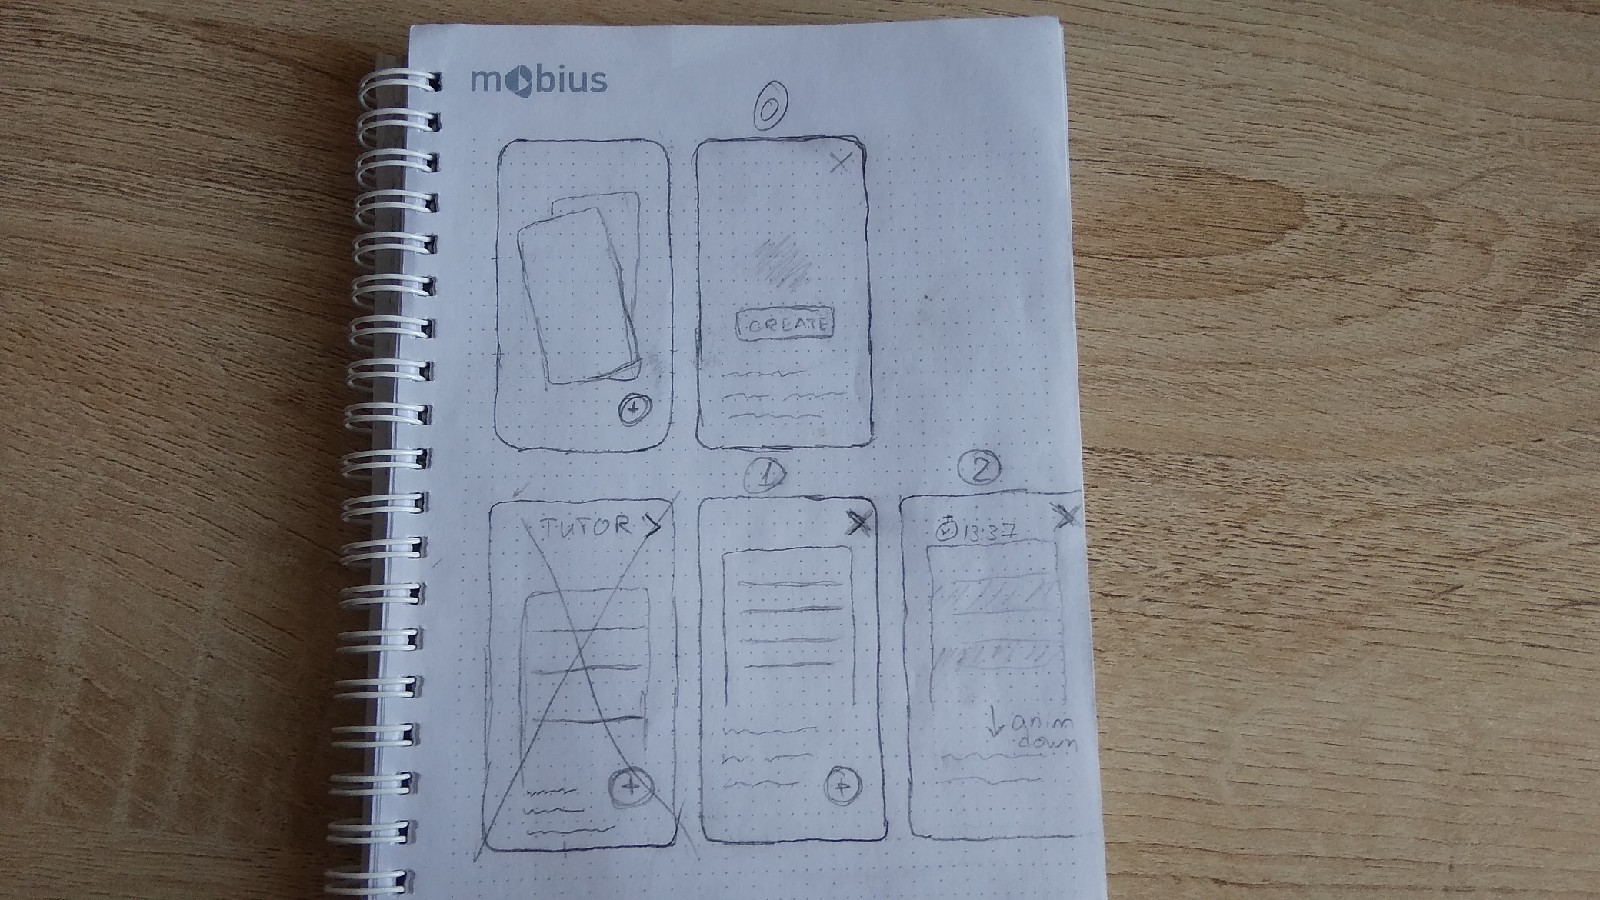 mobius
0
CREATE
1
2
TUTOR
13:37
anim
down